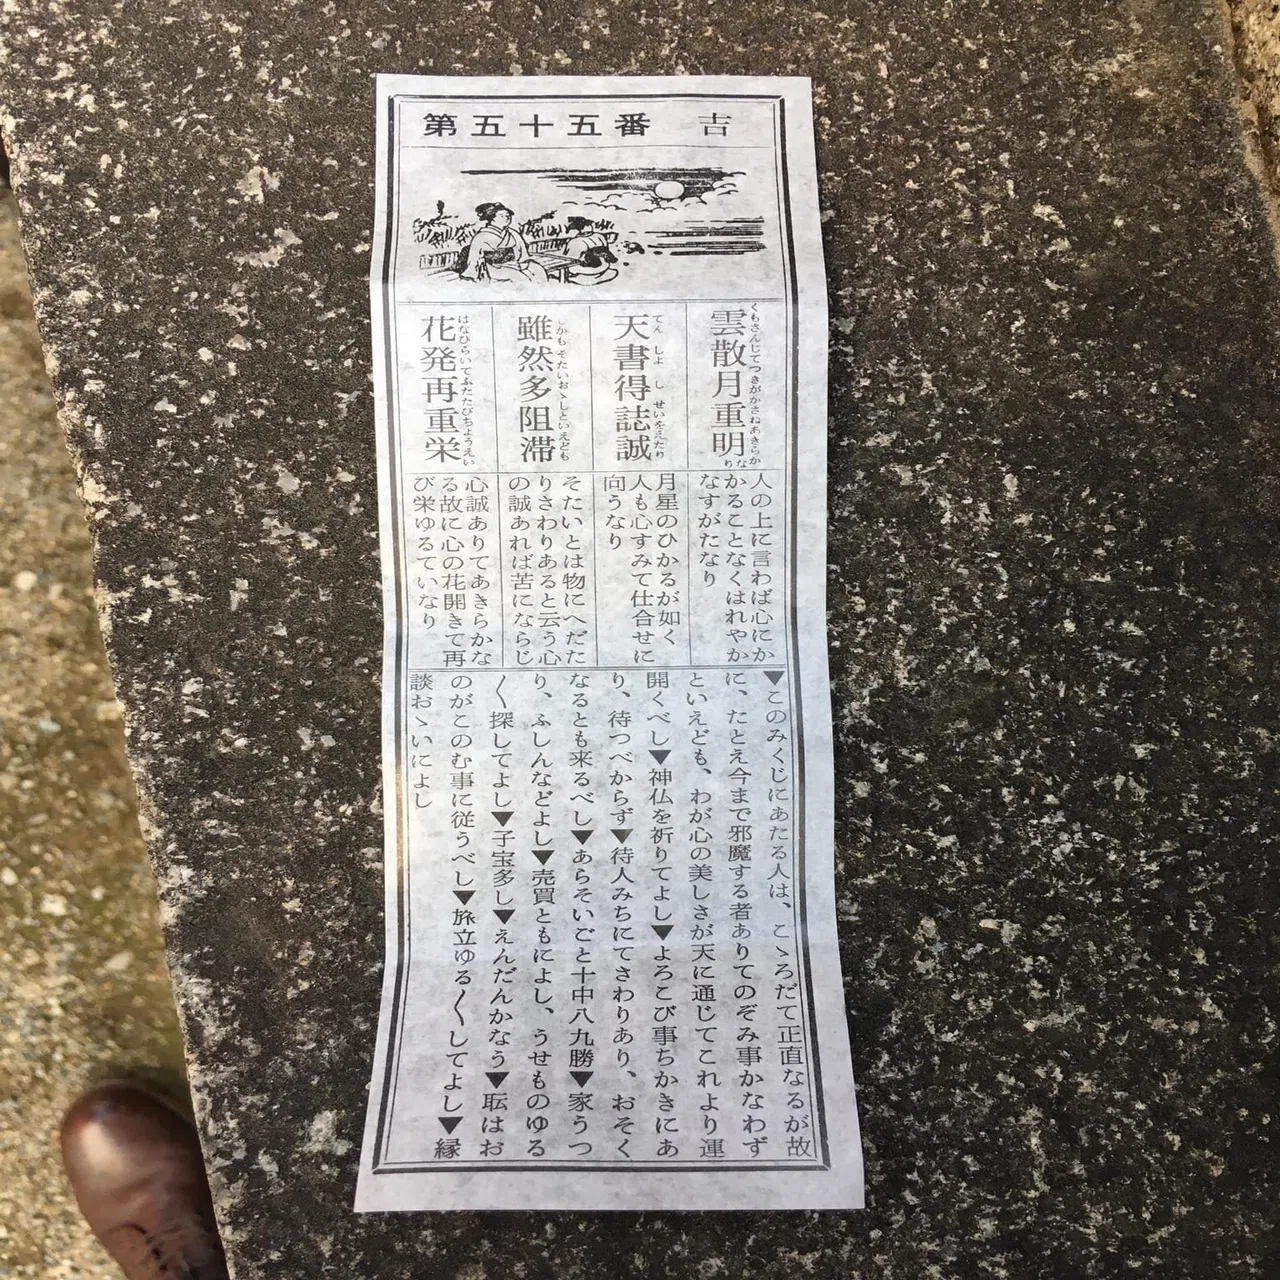 第五十五番 吉
雲散月重明
くもさんじてつきがかさねあきらかなり
天書得誌誠
てんしよしせいをえたり
雖然多阻滞
しかもそたいおゝしといえども
花発再重栄
はなひらいてふたたびちようえい
人の上に言わば心にか
かることなくはれやか
なすがたなり
月星のひかるが如く
人も心すみて仕合せに
向うなり
そたいとは物にへだた
りさわりあると云う心
の誠あれば苦にならじ
心誠ありてあきらかな
る故に心の花開きて再
び栄ゆるていなり
▼このみくじにあたる人は、こゝろだて正直なるが故
に、たとえ今まで邪魔する者ありてのぞみ事かなわず
といえども、わが心の美しさが天に通じてこれより運
開くべし▼神仏を祈りてよし▼よろこび事ちかきにあ
り、待つべからず▼待人みちにてさわりあり、おそく
なるとも来るべし▼あらそいごと十中八九勝▼家うつ
り、ふしんなどよし▼売買ともによし、うせものゆる
〱探してよし▼子宝多し▼えんだんかなう▼耺はお
のがこのむ事に従うべし▼旅立ゆる〱してよし▼縁
談おゝいによし